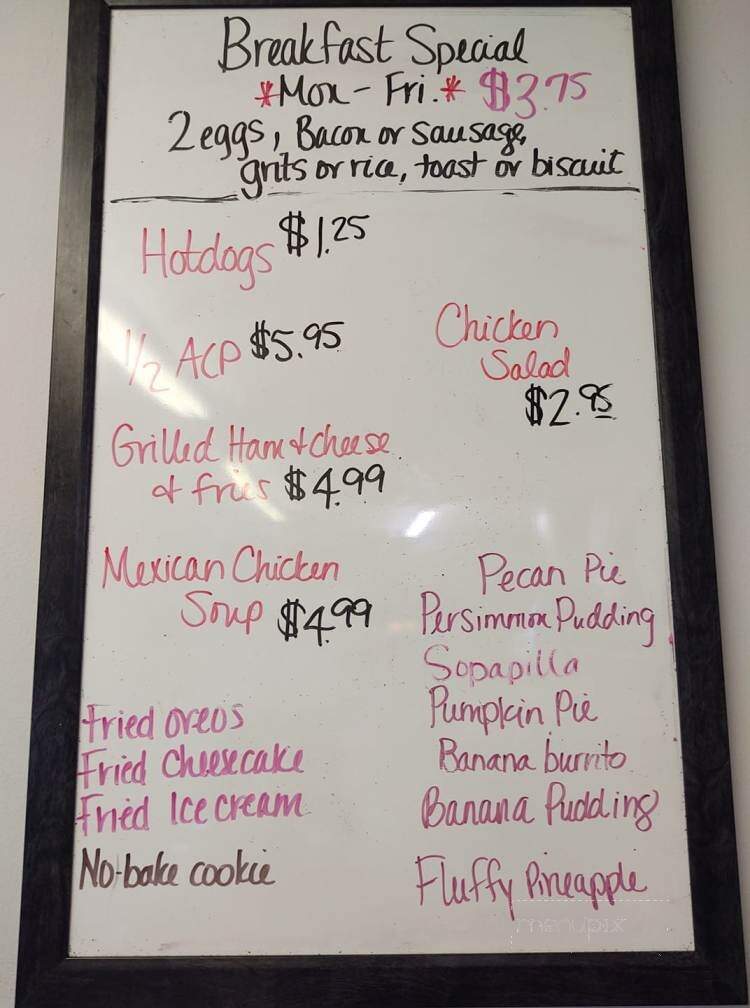 Breakfast Special
*Mon - Fri.* $3.75
2 eggs, Bacon or Sausage,
grits or rice, toast or biscuit
Hotdogs $1.25
1/2 ACP $5.95
Chicken
Salad
$2.95
Grilled Ham & cheese
& fries $4.99
Mexican Chicken
Soup $4.99
Fried oreos
Fried Cheesecake
Fried Ice cream
No-bake cookie
Pecan Pie
Persimmon Pudding
Sopapilla
Pumpkin Pie
Banana burrito
Banana Pudding
Fluffy Pineapple
menupix